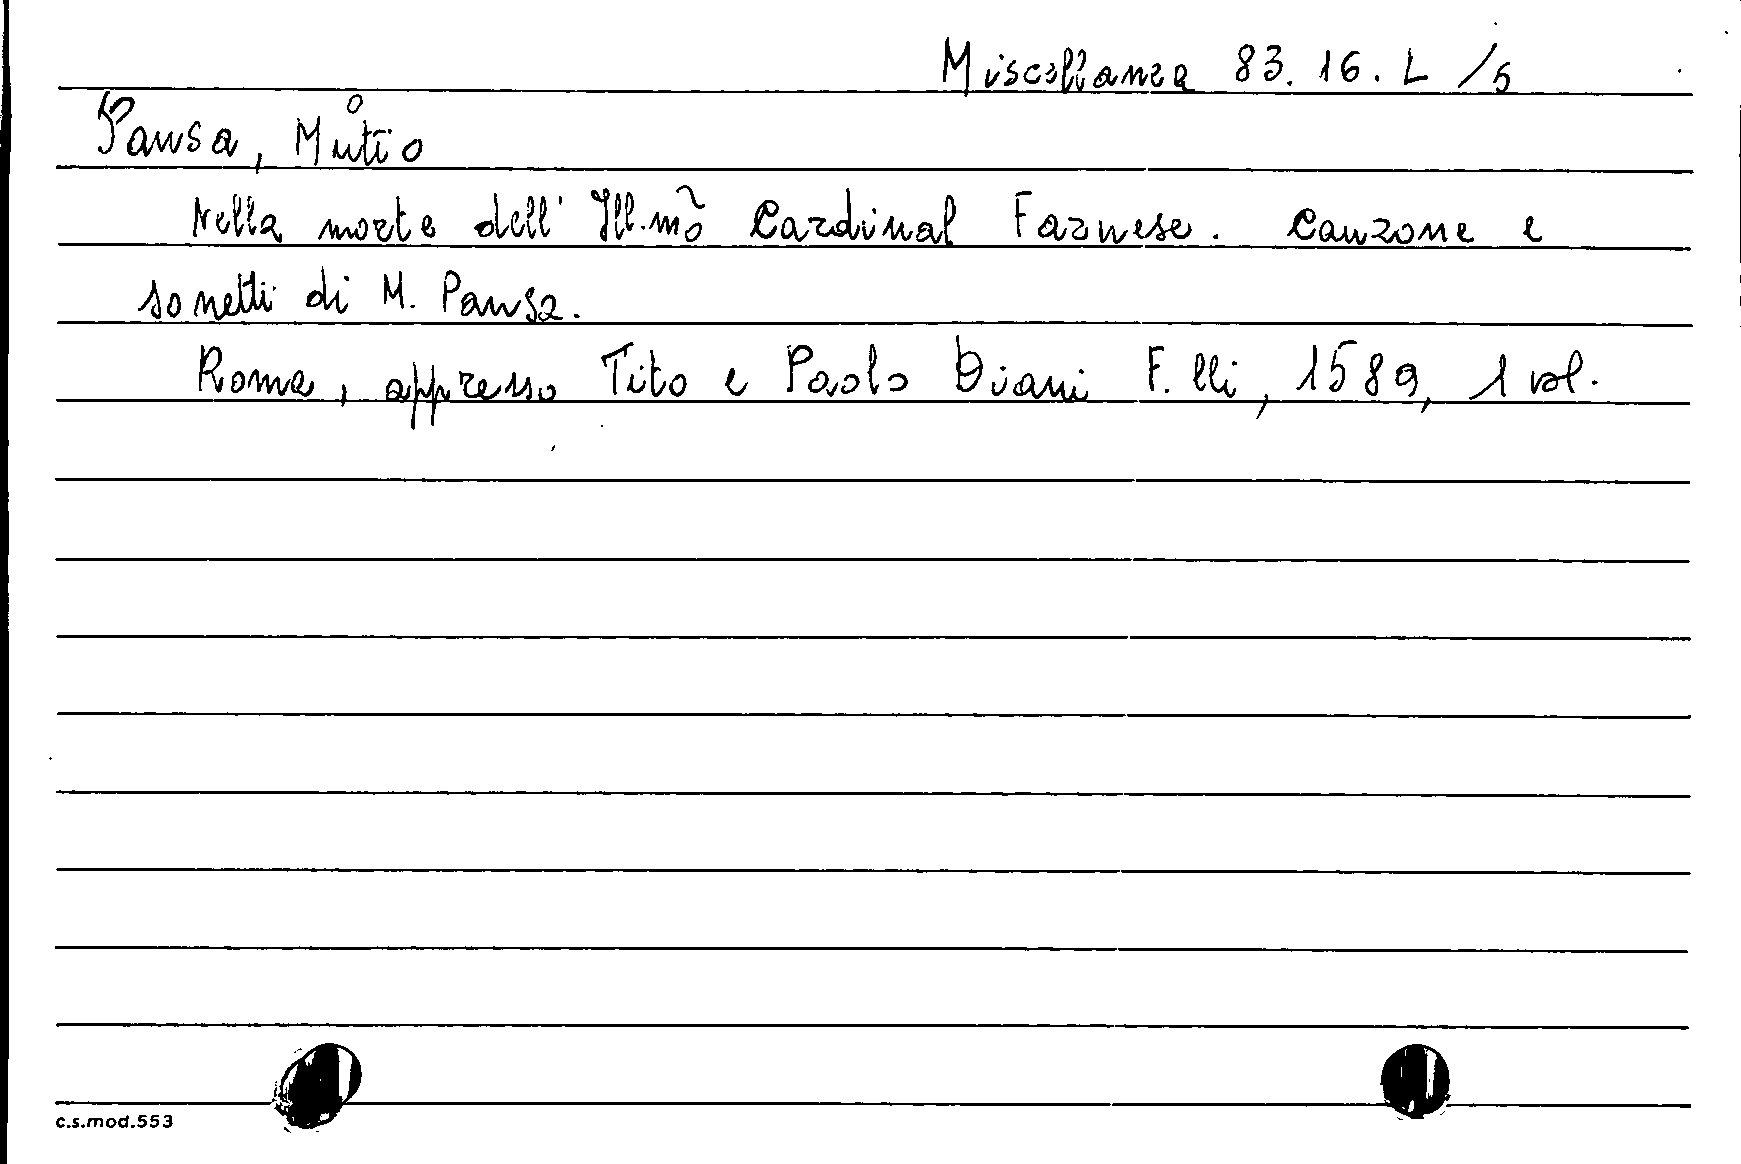 Miscellanea 83. 16. L /5
Pansa, Mutio
Nella morte dell' Ill.mo Cardinal Farnese. Canzone e
sonetti di M. Pansa.
Roma, appresso Tito e Paolo Diani F.lli, 1589, 1 vol.
c.s.mod.553